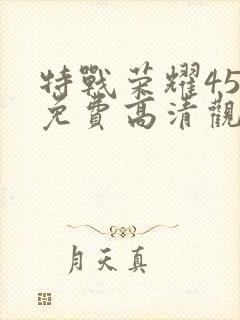 特戰荣耀45
免費高清觀
月天真